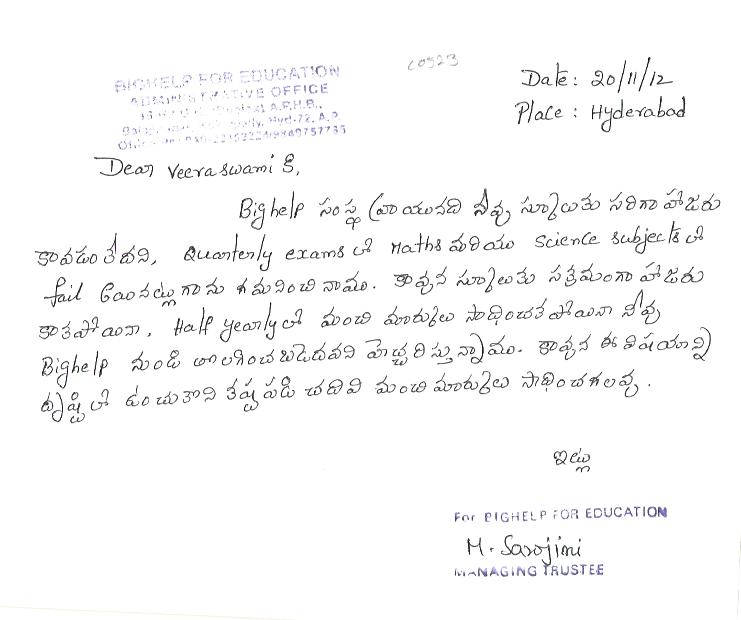 C0523
BIGHELP FOR EDUCATION
ADMINISTRATIVE OFFICE
A.P.H.B.,
Hyd-72, A.P.
Date: 20/11/12
Place : Hyderabad
Dear Veeraswami K,
Bighelp సంస్థ వ్రాయునది నీవు స్కూలుకు సరిగా హాజరు
కావడంలేదని, Quarterly exams లో Maths మరియు Science subjects లో
fail అయినట్లుగాను గమనించినాము. కావున స్కూలుకు సక్రమంగా హాజరు
కాకపోయినా, Half yearly లో మంచి మార్కులు సాధించకపోయినా నీవు
Bighelp నుండి తొలగించబడెదవని హెచ్చరిస్తున్నాము. కావున ఈ విషయాన్ని
దృష్టిలో ఉంచుకొని కష్టపడి చదివి మంచి మార్కులు సాధించగలవు.
ఇట్లు
For BIGHELP FOR EDUCATION
M. Sarojini
MANAGING TRUSTEE